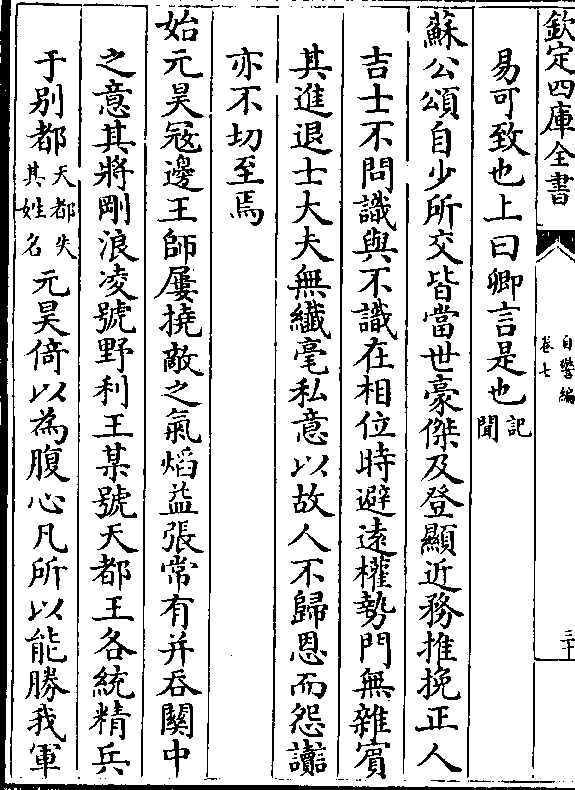 欽定四庫全書
自警編
卷七
三十
易可致也上曰卿言是也記聞
蘇公頌自少所交皆當世豪傑及登顯近務推挽正人
吉士不問識與不識在相位時避逺權勢門無雜賔
其進退士大夫無纎毫私意以故人不歸恩而怨讟
亦不切至焉
始元昊冦邊王師屢撓敵之氣焰益張常有并吞闗中
之意其將剛浪凌號野利王某號天都王各統精兵
于别都天都失其姓名元昊倚以為腹心凡所以能勝我軍